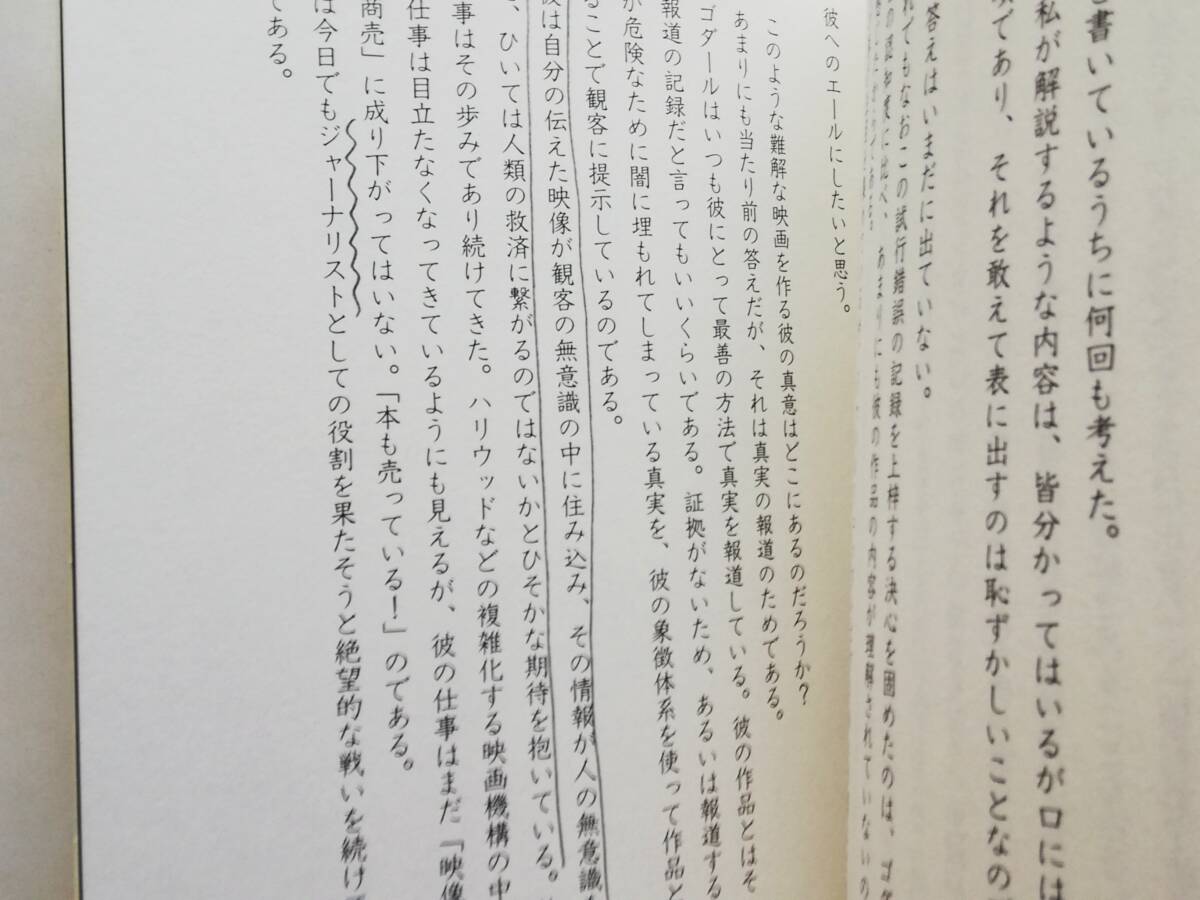 書いているうちに何回も考えた。
私が解説するような内容は、皆分かってはいるが口には
であり、それを敢えて表に出すのは恥ずかしいことなの
答えはいまだに出ていない。
れでもなおこの試行錯誤の記録を上梓する決心を固めたのは、ゴダ
に比べ、あまりにも彼の作品の内容が理解されていないの
彼へのエールにしたいと思う。
このような難解な映画を作る彼の真意はどこにあるのだろうか？
あまりにも当たり前の答えだが、それは真実の報道のためである。
ゴダールはいつも彼にとって最善の方法で真実を報道している。彼の作品とはそ
報道の記録だと言ってもいいくらいである。証拠がないため、あるいは報道する
が危険なために闇に埋もれてしまっている真実を、彼の象徴体系を使って作品と
ることで観客に提示しているのである。
彼は自分の伝えた映像が観客の無意識の中に住み込み、その情報が人の無意識を
、ひいては人類の救済に繋がるのではないかとひそかな期待を抱いている。
事はその歩みであり続けてきた。ハリウッドなどの複雑化する映画機構の中
仕事は目立たなくなってきているようにも見えるが、彼の仕事はまだ「映像
商売」に成り下がってはいない。「本も売っている！」のである。
は今日でもジャーナリストとしての役割を果たそうと絶望的な戦いを続け
である。